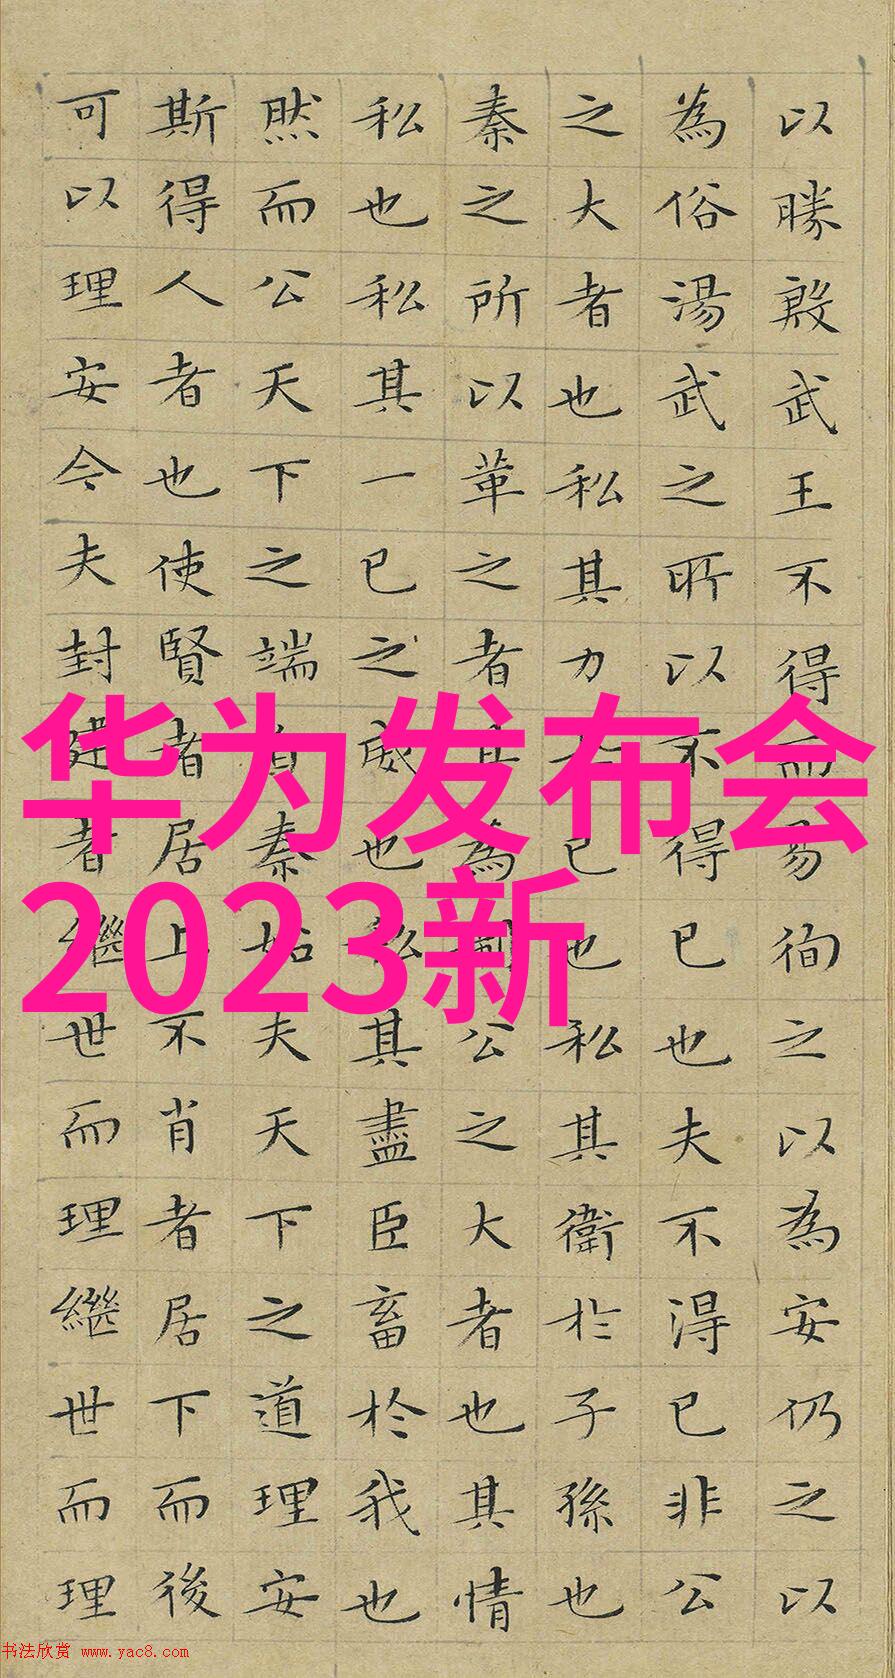 以勝殷武王不得而易徇之以為安仍之以
為俗湯武之所以不得已也夫不得已非公
之大者也私其力於已也私其衛於子孫也
秦之所以革之者其為制公之大者也其情
私也私其一已之威也私其盡臣畜於我也
然而公天下之端自秦始夫天下之道理安
斯得人者也使賢者居上不肖者居下而後
可以理安今夫封建者繼世而理繼世而理
华为发布会
2023新
书法欣赏 www.yac8.com